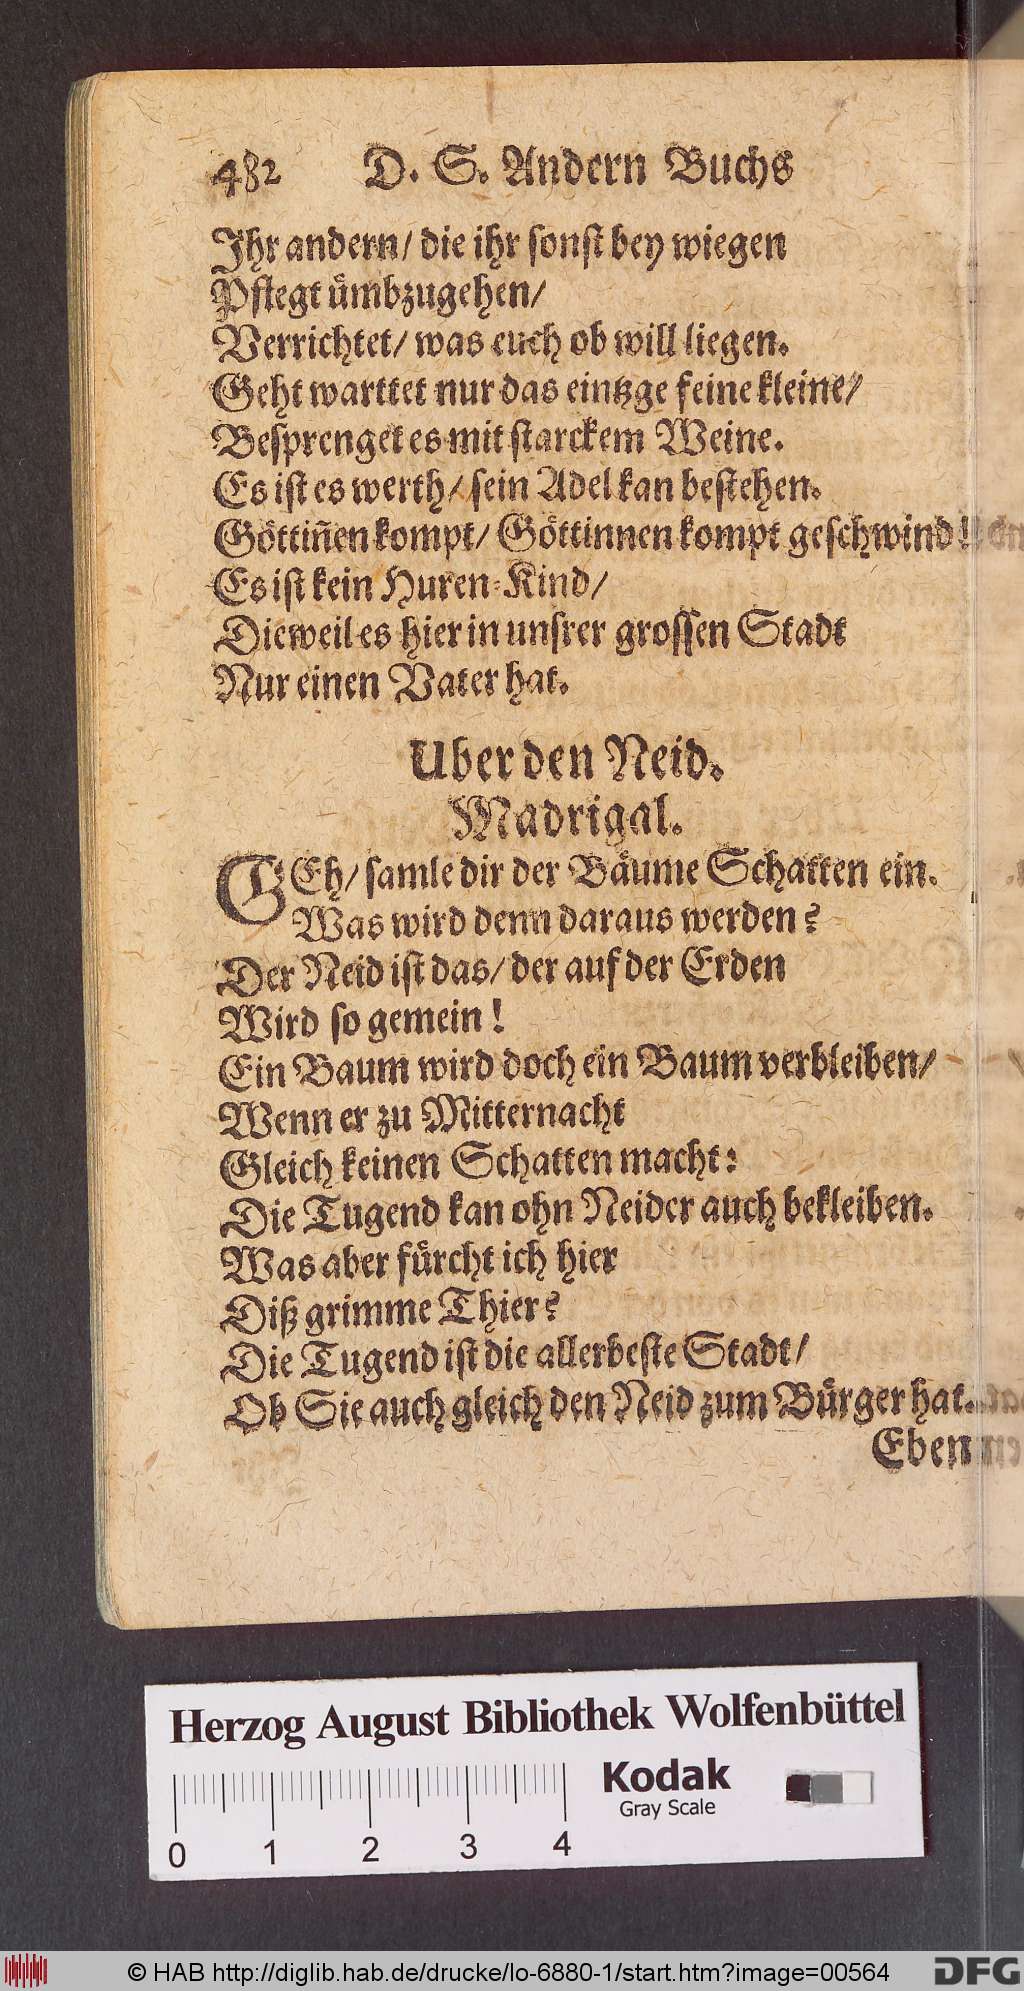 482 D. S. Andern Buchs
Ihr andern/ die ihr sonst bey wiegen
Pflegt ümbzugehen/
Verrichtet/ was euch ob will liegen.
Geht warttet nur das eintzge feine kleine/
Besprenget es mit starckem Weine.
Es ist es werth/ sein Adel kan bestehen.
Göttiñen kompt/ Göttinnen kompt geschwind!
Es ist kein Huren-Kind/
Dieweil es hier in unsrer grossen Stadt
Nur einen Vater hat.
Uber den Neid.
Madrigal.
GEh/ samle dir der Bäume Schatten ein.
Was wird denn daraus werden?
Der Neid ist das/ der auf der Erden
Wird so gemein!
Ein Baum wird doch ein Baum verbleiben/
Wenn er zu Mitternacht
Gleich keinen Schatten macht:
Die Tugend kan ohn Neider auch bekleiben.
Was aber fürcht ich hier
Diß grimme Thier?
Die Tugend ist die allerbeste Stadt/
Ob Sie auch gleich den Neid zum Bürger hat.
Eben
Herzog August Bibliothek Wolfenbüttel
Kodak
Gray Scale
0 1 2 3 4
© HAB http://diglib.hab.de/drucke/lo-6880-1/start.htm?image=00564
DFG